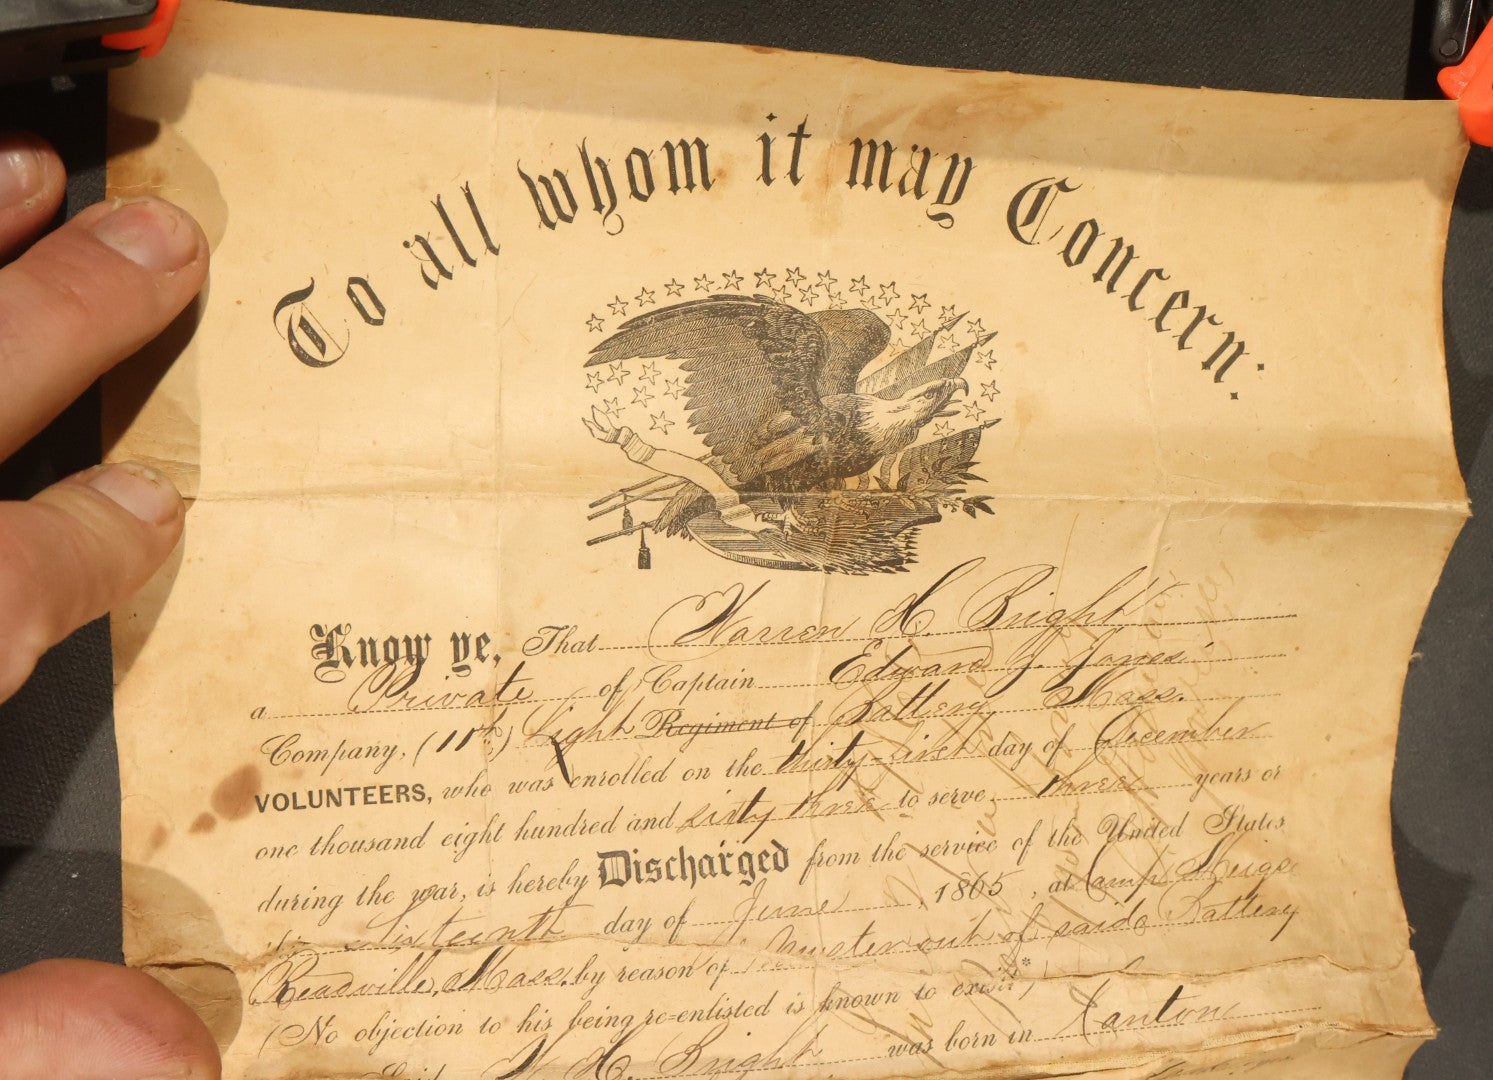 To all whom it may Concern:
Know ye, That Warren H. Bright
a Private of Captain Edward J. Jones'
Company, (11th) Light Regiment of Battery Mass.
VOLUNTEERS, who was enrolled on the thirty-first day of December
one thousand eight hundred and sixty three to serve three years or
during the war, is hereby Discharged from the service of the United States
this sixteenth day of June, 1865, at Camp Meigs
Readville, Mass. by reason of Muster out of said Battery
(No objection to his being re-enlisted is known to exist*)
Said W. H. Bright was born in Canton